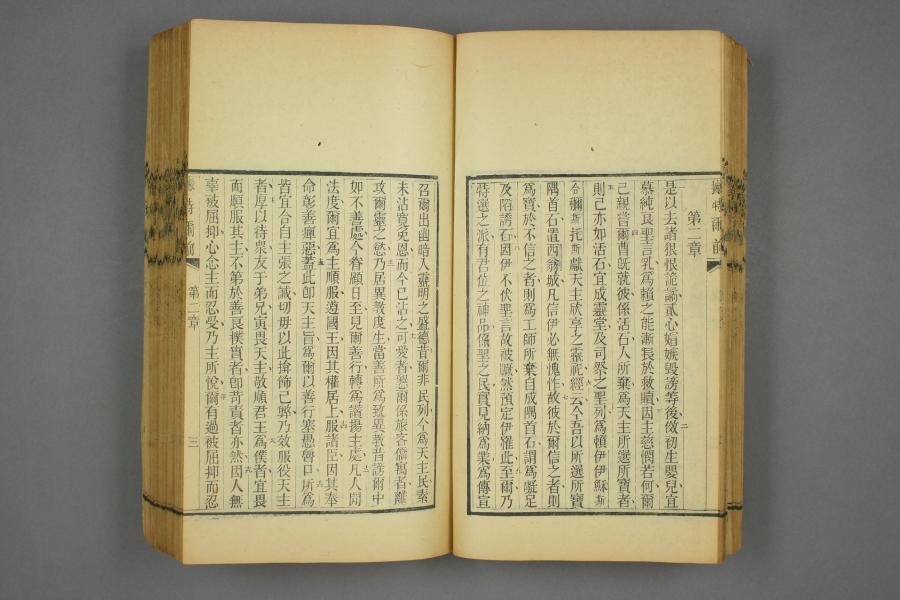 第二章
是以去諸狠恨詭諭貳心媢嫉毀謗等後倣初生嬰兒宜
慕純良聖言乳為賴之能漸長於救贖因主慈憫若何爾
己親嘗爾曹旣就彼係活石人所棄為天主所選所寶者
則己亦如活石宜成靈堂及司祭之聖列為賴伊伊穌斯
合彌斯托斯獻天主欣享之靈祀經云今吾以所選所寶
隅首石置西翁城凡信伊必無愧怍故彼於爾信之者則
為寶於不信之者則為工師所棄自成隅首石謂為礙足
及陷誘石因伊不伏聖言故被躓然預定伊罹此至爾乃
特選之派有君位之神品係聖之民實見納為業為傳宣
召爾出幽暗入靈明之盛德昔爾非民列今為天主民素
未沾寬免恩而今已沾之可愛者懇爾係旅客僑寓者離
攻爾靈之慾乃居異教度生當善所為致異教昔謗爾中
如不善處今眷顧日至見爾善行轉為讚揚主處凡人間
法度爾宜為主順服遵國王因其權居上服諸臣因其奉
命彰善癉惡蓋此卽天主旨為爾以善行塞愚唇口所為
皆宜合自主張之誡切毋以此揜飾己弊乃效服役天主
者厚以待衆友于弟兄寅畏天主敬順君王為僕者宜畏
而順服其主不第於善良樸實者卽苛責者亦然因人無
辜被屈抑心念主而忍受乃主所悅爾有過被屈抑而忍
特爾前 第二章 三